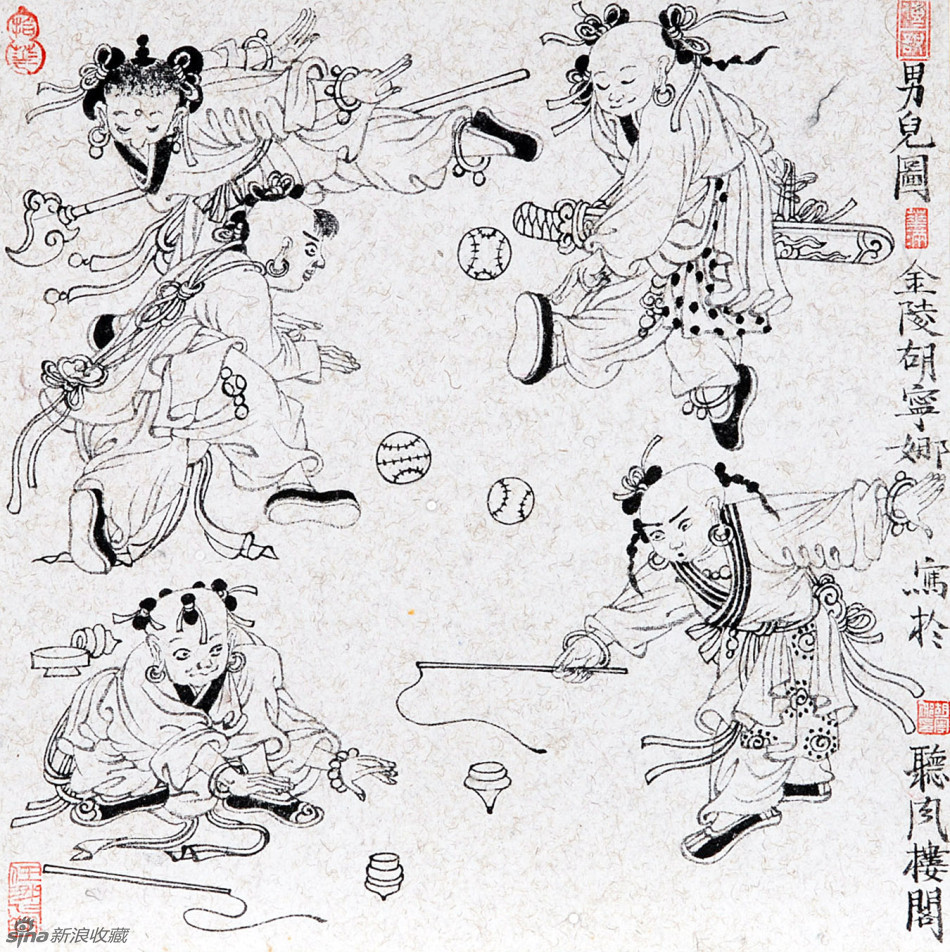 男兒圖
金陵胡寧娜
寫於
聽风樓閣
sina新浪收藏